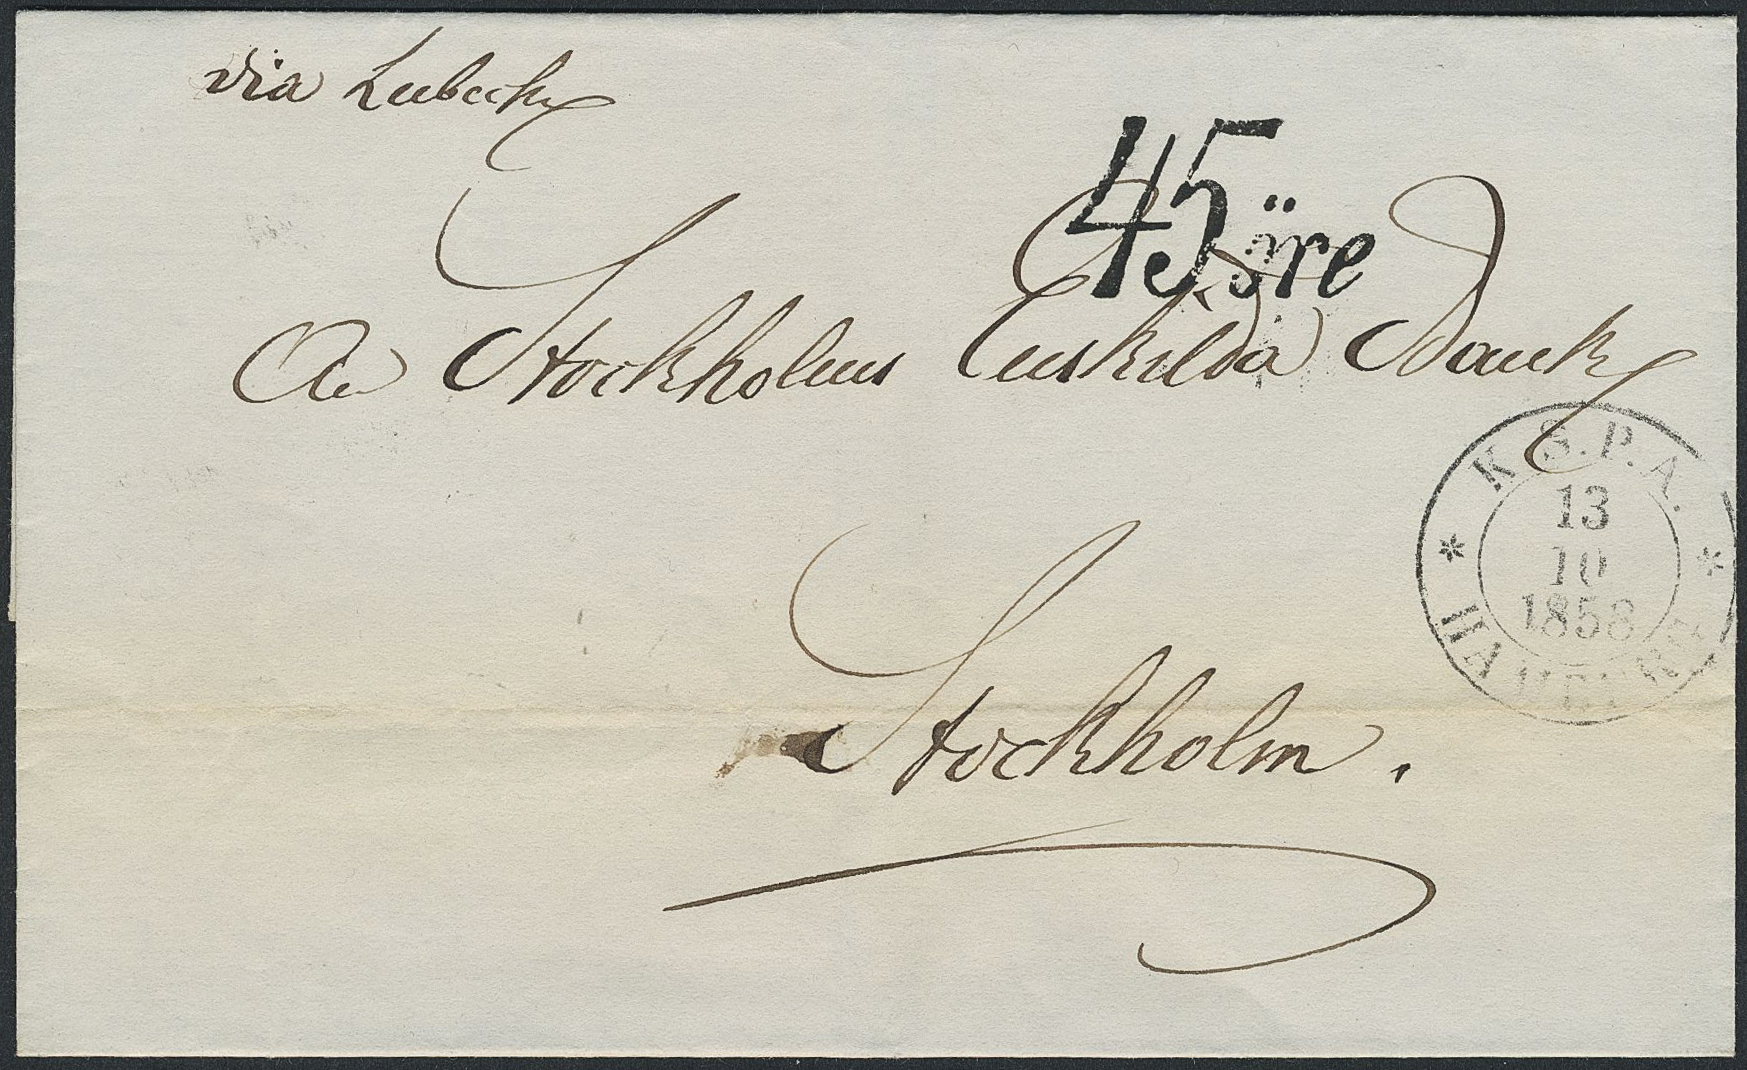 via Lubeck
45 öre
An Stockholms Enskilda Bank
K.S.P.A.
13
10
1858
HAMBURG
Stockholm.